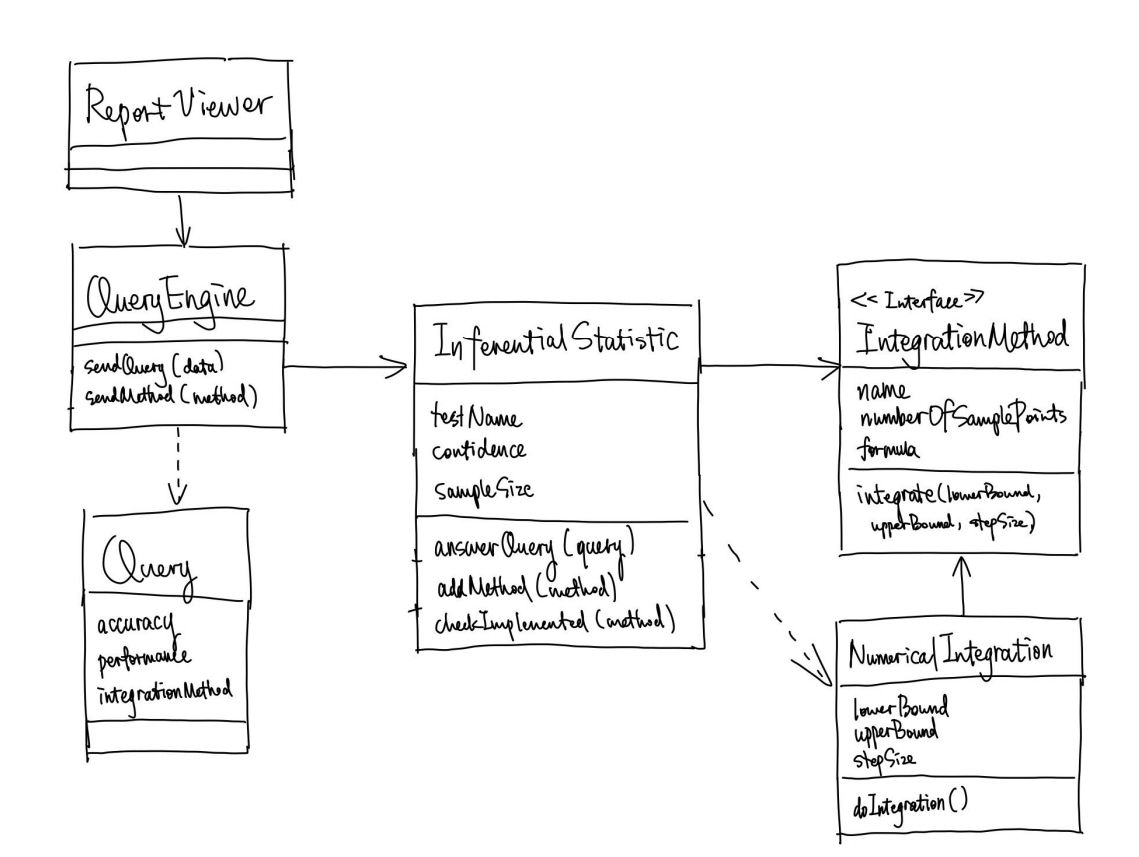 ReportViewer
QueryEngine
sendQuery (data)
sendMethod (method)
Query
accuracy
performance
integrationMethod
Inferential Statistic
testName
confidence
sampleSize
answerQuery (query)
addMethod (method)
checkImplemented (method)
<< Interface >>
IntegrationMethod
name
numberOfSamplePoints
formula
integrate(lowerBound,
upperBound, stepSize)
Numerical Integration
lowerBound
upperBound
stepSize
doIntegration()